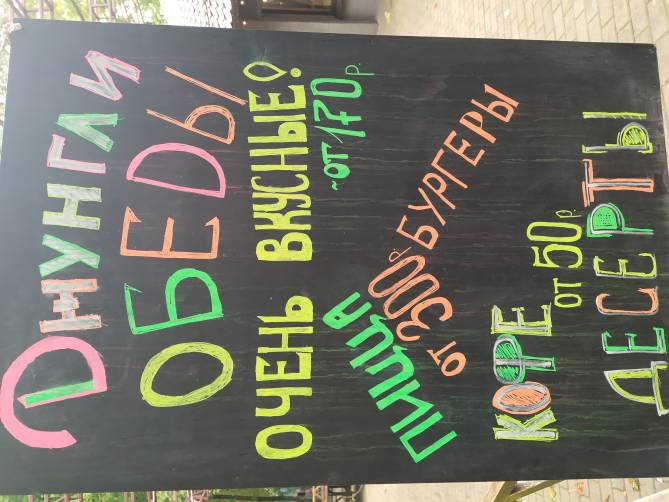 ДЖУНГЛИ
ОБЕДЫ
ОЧЕНЬ ВКУСНЫЕ!
~ОТ 170 р.
ПИЦЦА
ОТ 300р.
БУРГЕРЫ
КОФЕ
ОТ 50 р
ДЕСЕРТЫ